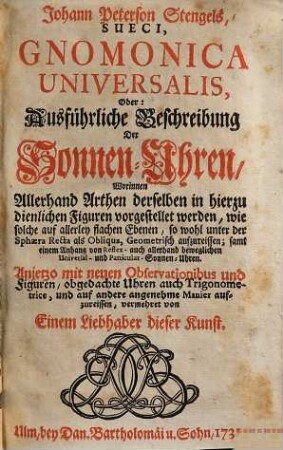 Johann Peterson Stengels,
SUECI,
GNOMONICA
UNIVERSALIS,
Oder:
Ausführliche Beschreibung
Der
Sonnen-Uhren/
Worinnen
Allerhand Arthen derselben in hierzu
dienlichen Figuren vorgestellet werden, wie
solche auf allerley flachen Ebenen, so wohl unter der
Sphæra Recta als Obliqua, Geometrisch aufzureissen; samt
einem Anhang von Reflex- auch allerhand beweglichen
Universal- und Particular-Sonnen-Uhren.
Anjetzo mit neuen Observationibus und
Figuren/ obgedachte Uhren auch Trigonome-
trice, und auf andere angenehme Manier auf-
zureissen, vermehret von
Einem Liebhaber dieser Kunst.
Ulm, bey Dan. Bartholomäi u. Sohn, 173